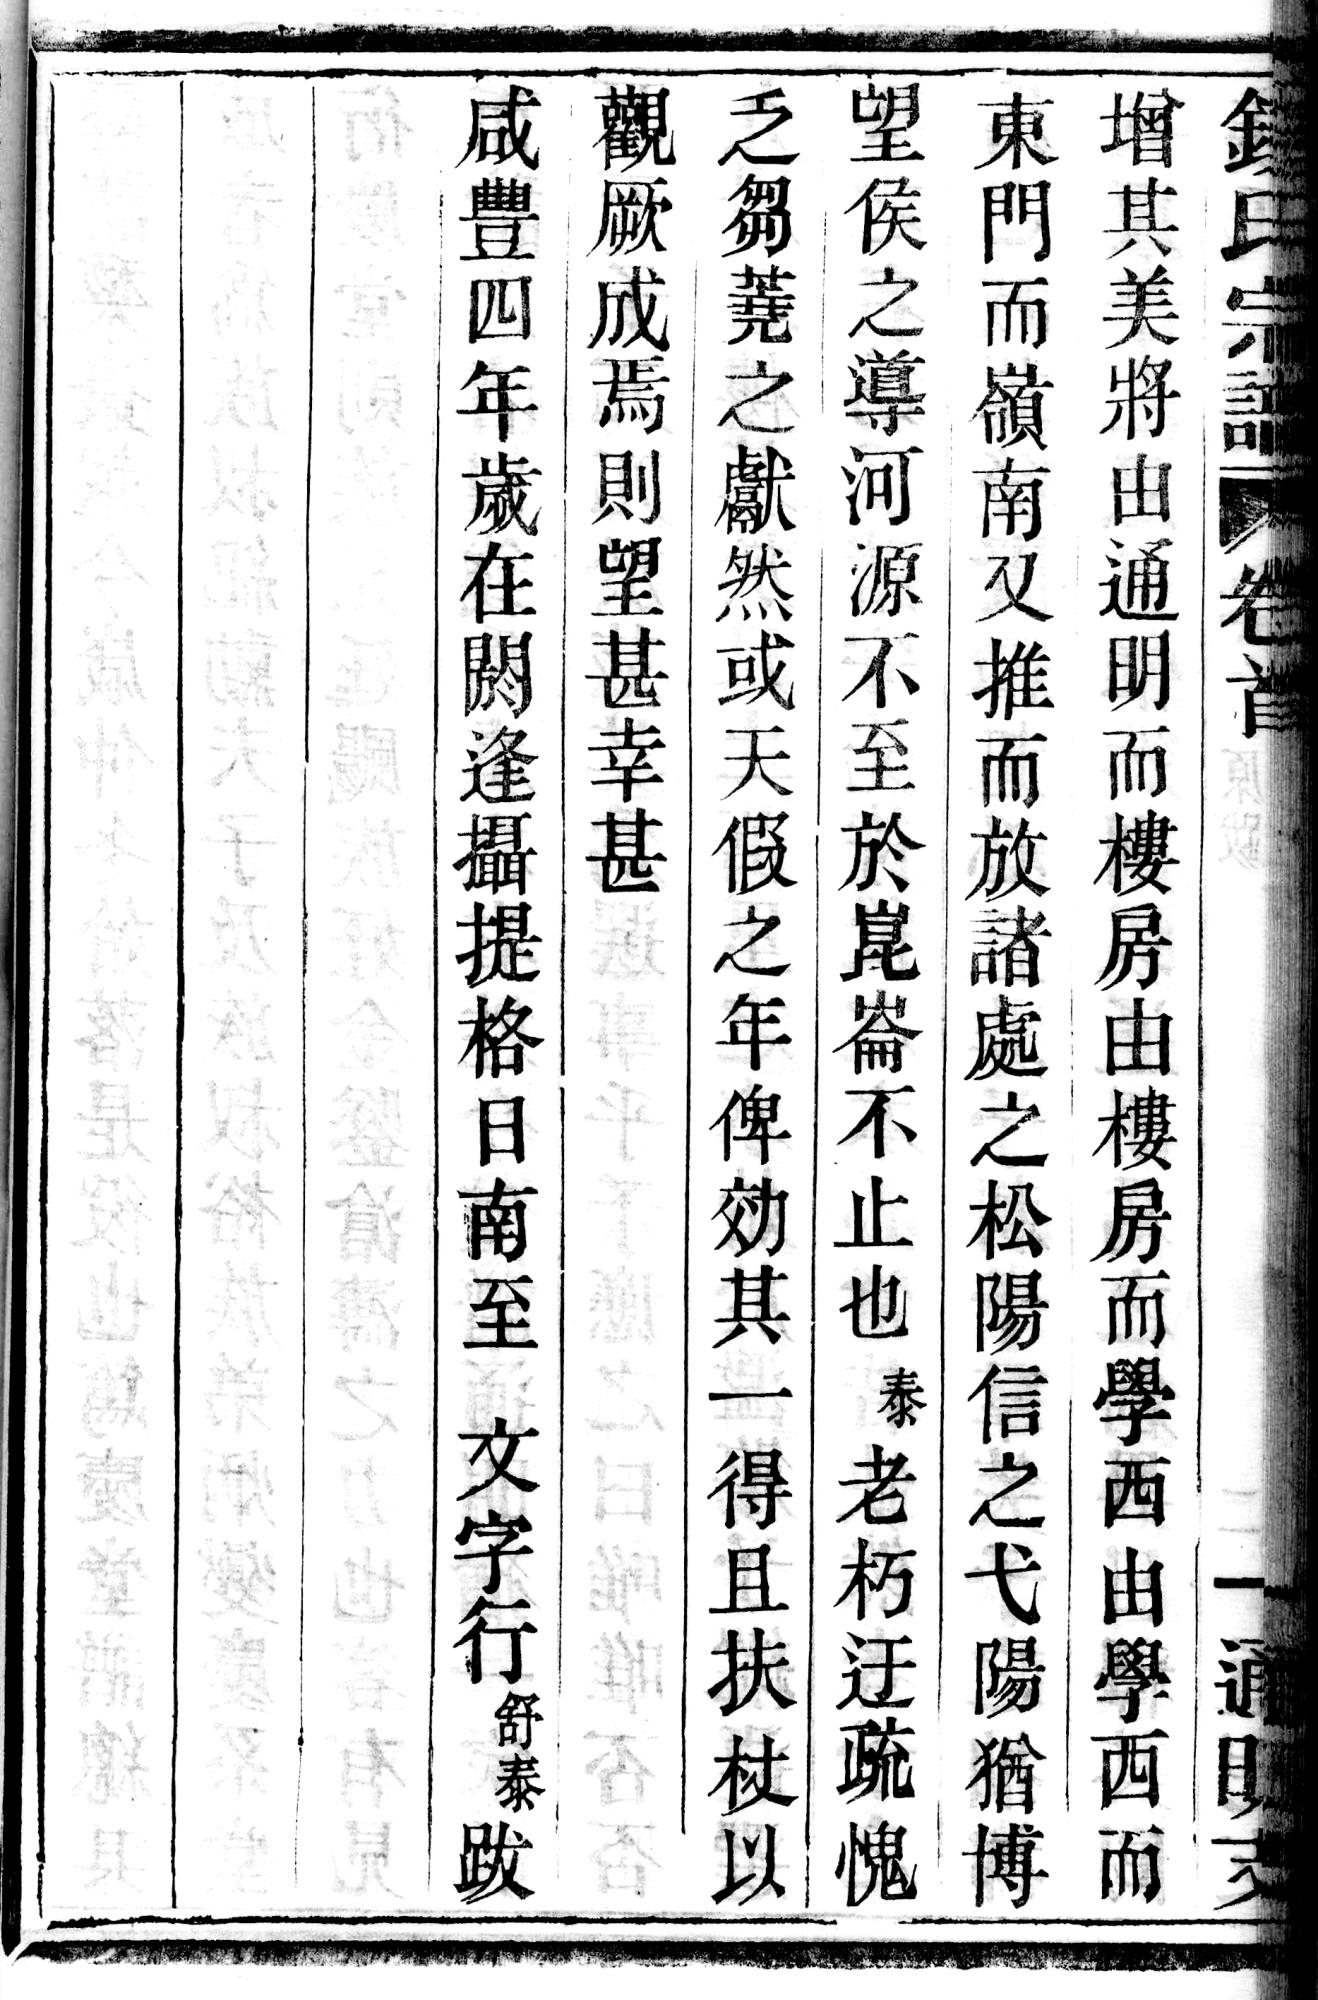 氏宗譜 卷首 原跋 二 通明支
增其美將由通明而樓房由樓房而學西由學西而
東門而嶺南又推而放諸處之松陽信之弋陽猶博
望侯之導河源不至於崑崙不止也泰老朽迂疏愧
乏芻蕘之獻然或天假之年俾効其一得且扶杖以
觀厥成焉則望甚幸甚
咸豐四年歲在閼逢攝提格日南至 文字行舒泰跋